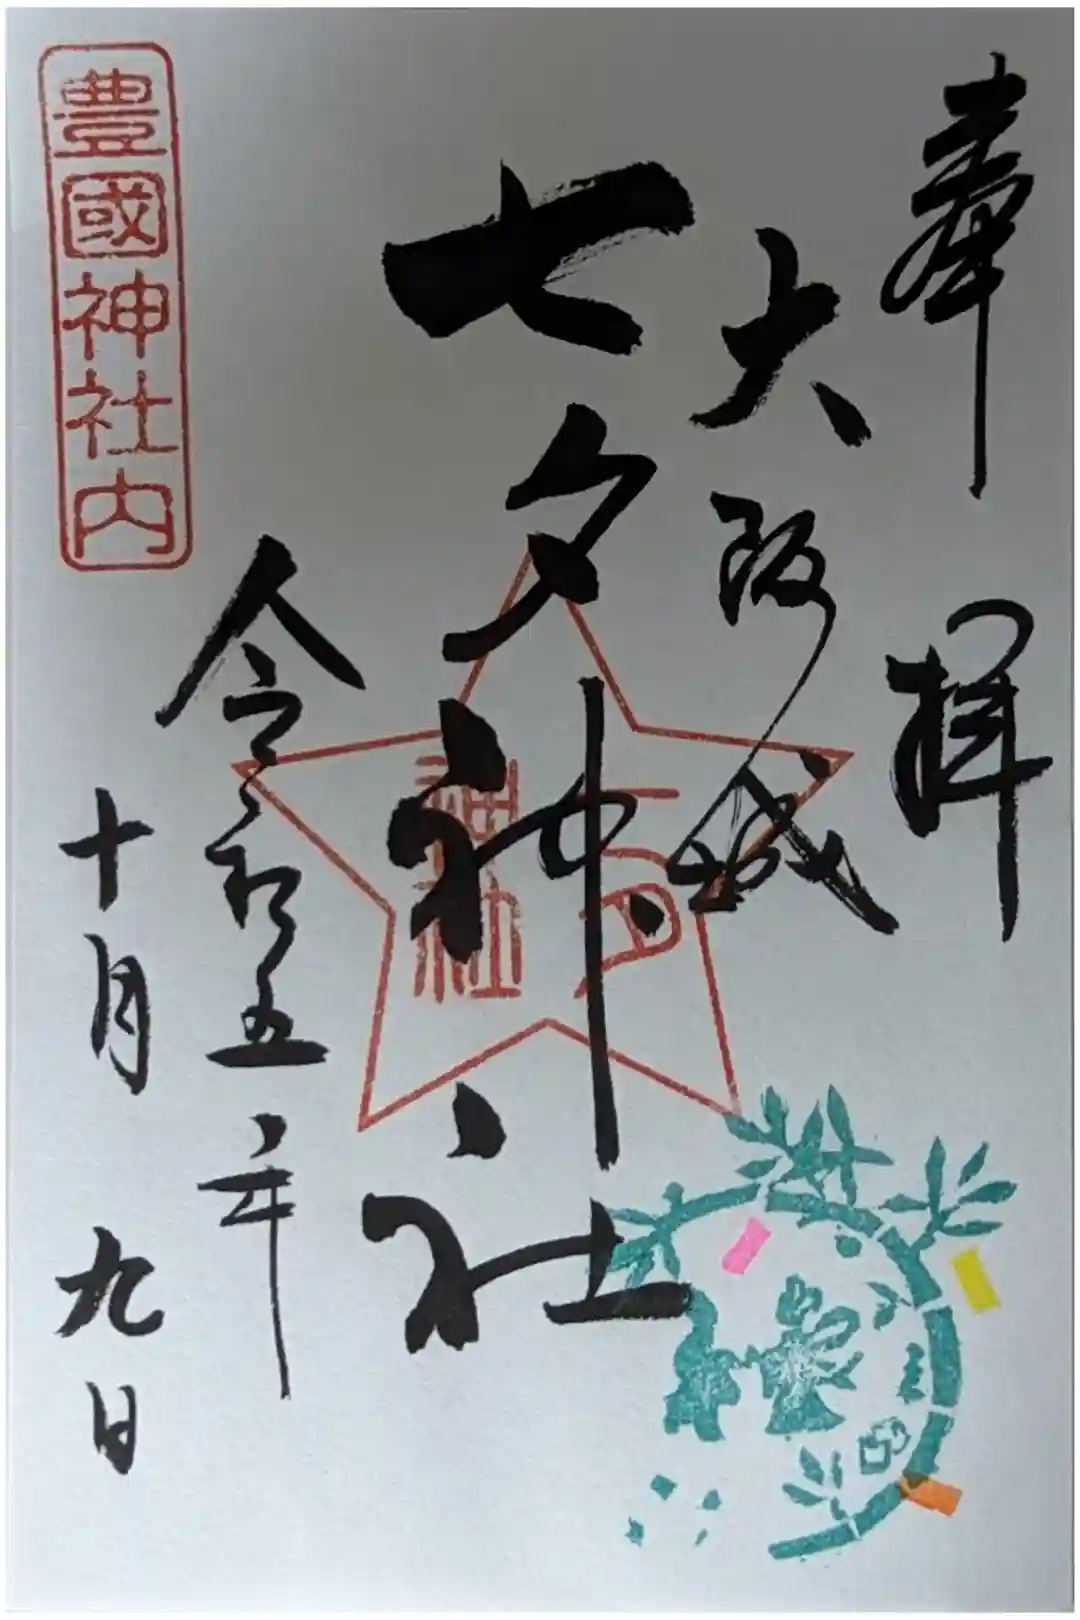 奉拝
大阪城
七夕神社
七夕
神社
令和五年
十月九日
豊國神社内